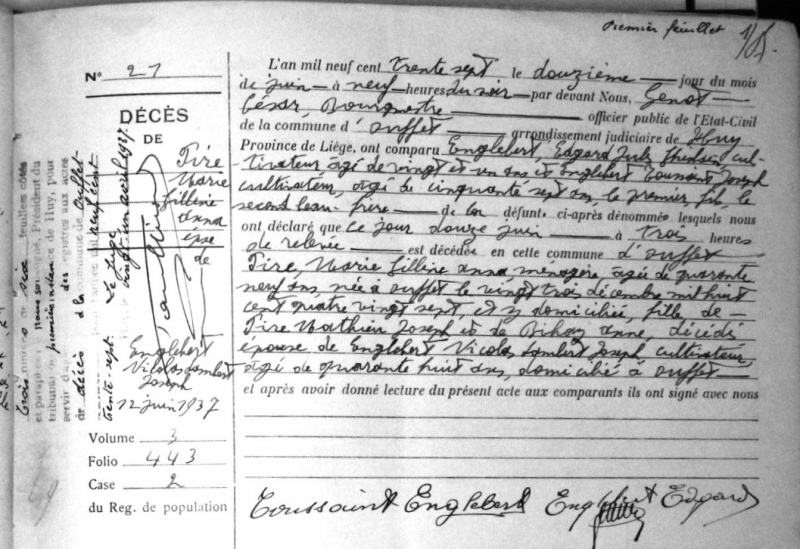 Premier feuillet
1/
N° 21
DÉCÈS
DE
Tire
Marie
Filline
Anna
épse
de
Englebert
Nicolas Lambert
Joseph
12 juin 1937
Volume 3
Folio 443
Case 2
du Reg. de population
L'an mil neuf cent trente sept le douzième jour du mois
de juin à neuf heures du soir par devant Nous, Genot
César, Bourgmestre officier public de l'Etat-Civil
de la commune d'Ouffet arrondissement judiciaire de Huy
Province de Liége, ont comparu Englebert, Edgard Jules Ghislain cul-
tivateur âgé de vingt et un ans et Englebert Toussaint Joseph
cultivateur, âgé de cinquante sept ans, le premier fils, le
second beau-frère de la défunte ci-après dénommée lesquels nous
ont déclaré que ce jour douze juin à trois heures
de relevée est décédée en cette commune d'Ouffet
Tire, Marie Filline Anna ménagère âgée de quarante
neuf ans, née à Ouffet le vingt trois décembre mil huit
cent quatre vingt sept, et y domiciliée, fille de
Tire Mathieu Joseph et de Bihay Anne, décédés
épouse de Englebert Nicolas Lambert Joseph, cultivateur,
âgé de quarante huit ans, domicilié à Ouffet
et après avoir donné lecture du présent acte aux comparants ils ont signé avec nous
Toussaint Englebert Englebert Edgard
feuillets cotés
et paraphés par Nous soussigné, Président du
tribunal de première instance de Huy, pour
servir d'acte des registres aux actes
de décès de la commune de Ouffet
trente-sept.
Le Juge
vingt un avril 1937.
neuf cent